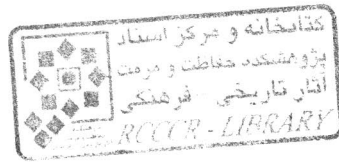 کتابخانه و مرکز اسناد
پژوهشکده حفاظت و مرمت
آثار تاریخی - فرهنگی
RCCCR - LIBRARY